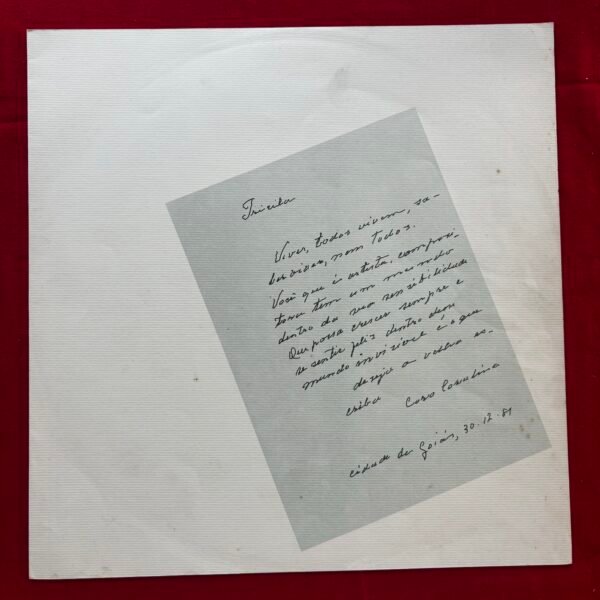 Viver, todos vivem, sa-
ber viver, nem todos.
Você que é artista, composi-
tora tem um mundo
dentro da sua sensibilidade
Que possa crescer sempre e
se sentir feliz dentro desse
mundo invizivel é o que
deseja a velha es-
criba Cora Coralina
cidade de Goiás, 30.12.81